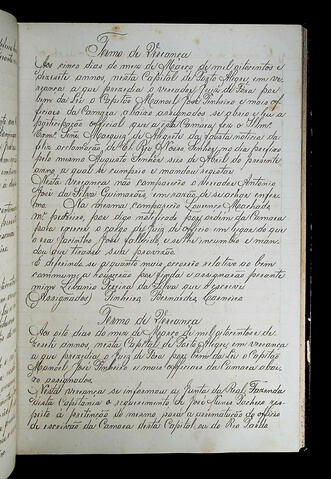 Termo de Vereança
Aos cinco dias do mez de Março de mil oitocentos e
dezesete annos, nesta Capital de Porto Alegre, em ve-
reança a que prezedio o vereador Juiz de Fora por
bem da Lei o Capitão Manoel José Pinheiro e mais of-
ficiaes da Camara, abaixo assignados se abrio
participação official que a esta Camara fez o Illmo
Exmo Snr Marquez de Alegrete da noticia da
feliz acclamação de El Rei Nosso Senhor, no dia
pelo mesmo Augusto Senhor seis de Abril do presente
anno, a qual se cumprio e mandou registar
Nesta vereança não compareceo o Vereador Antonio
José da Silva Guimarães, em razão de se achar enfer-
mo. Na mesma compareceo Lourenço Machado
pedreiro, por digo notificado por ordem da Camara
para exercer o cargo de Juiz do Officio em lugar do que
o era Jacintho José fallecido e se lhe incumbio e man-
dou que tirasse sua provisão.
E deferindo-se a quanto mais occorria relativo ao bem
commum, se houverão por finda e assignarão perante
mim Libanio Pereira da Silva que o escrevi
(Assignados) Pinheiro Fernandes Carneiro
Termo de Vereança
Aos oito dias do mez de Março de mil oitocentos e de-
zesete annos, nesta Capital de Porto Alegre, em vereança
a que prezedio o Juiz de Fora por bem da Lei o Capitão
Manoel José Pinheiro e mais officiaes da Camara abai-
xo assignados.
Nesta vereança se informou a Junta da Real Fazenda
desta Capitania o requerimento de José Nunes Pacheco res-
peito á pertenção do mesmo para a arrematação do officio
de escrivão da Camara desta Capital, ou do Rio Pardo